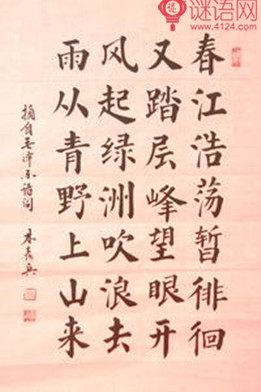 春江浩荡暂徘徊
又踏层峰望眼开
风起绿洲吹浪去
雨从青野上山来
摘自毛泽东诗词
谜语网
www.4124.com